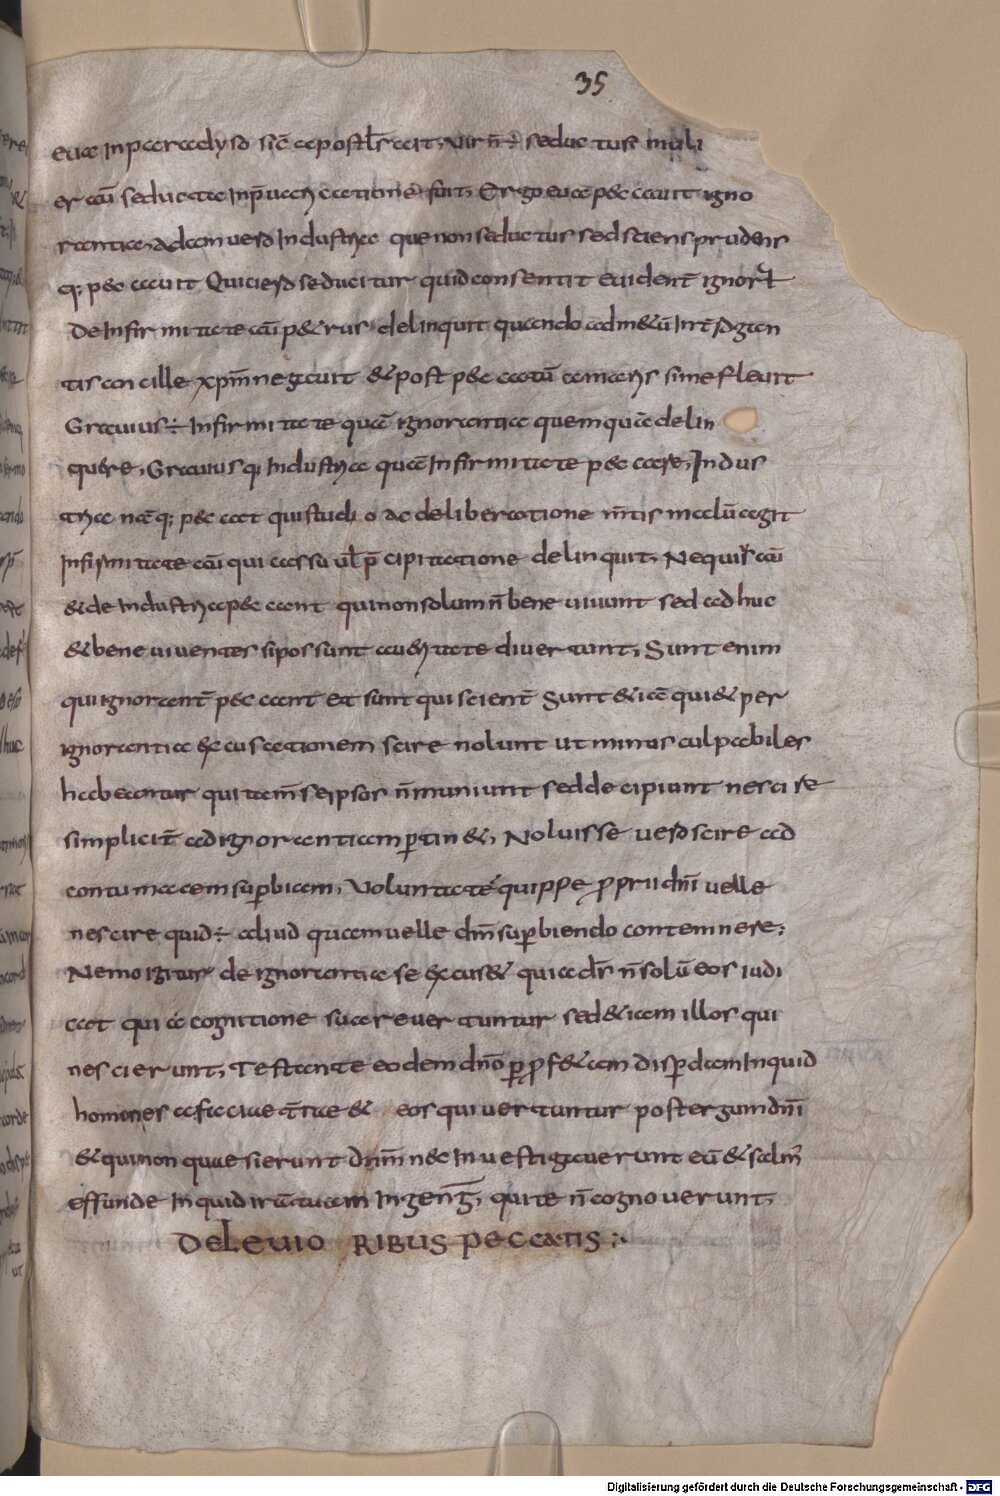 35
euae in paradyso sic̄ apostl̄s ait, vir n̄ ÷ seductus muli
er aū seducta in p̄uaricatione fuit. Ergo eua peccauit igno
rantia. Adam uero industria que non seductus sed sciens prudens
q; peccauit Qui uero seducitur quid consentit euident̄ ignorat
De infirmitate aū petrus delinquit quando ad metū int̄rogan
tis ancille xpm̄ negauit & post peccatū amaris sime fleuit
Grauius ÷ infirmitate quā ignorantia quemquā delin
quere, Grauius q; industria quā infirmitate peccare, Indus
tria nāq; peccat qui studio ac deliberatione m̄tis malū agit
Infirmitate aū qui casu ul̄ p̄cipitatione delinquit, Nequis aū
& de industria peccant qui non solum n̄ bene uiuunt sed adhuc
& bene uiuentes si possunt a ueritate diuertunt, Sunt enim
qui ignorant̄ peccant Et sunt qui scient̄ Sunt & iā qui & per
ignorantiae excusationem scire nolunt ut minus culpabiles
habeantur qui tam̄ se ipsos n̄ muniunt sed decipiunt nescire
simplicit̄ ad ignorantiam ptin&, Noluisse uero scire ad
contumacem supbiam, Voluntatē quippe pprii dn̄i uelle
nescire quid ÷ aliud quam uelle dm̄ supbiendo contemnere;
Nemo igitur de ignorantia se excus& quia ds̄ n̄ solū eos iudi
cat qui a cognitione sua reuertuntur sed & iam illos qui
nescierunt, Testante eodem dn̄o p pf&am Dispdam inquid
homines a faciae t̄rae & eos qui uertuntur post ergum dn̄i
& qui non quaesierunt Dnm̄ nec inuestigauerunt eū & salm̄
effunde inquid irā tuam in gentes, qui te n̄ cognouerunt.
DE LEUIORIBUS PECCATIS :
Digitalisierung gefördert durch die Deutsche Forschungsgemeinschaft - DFG